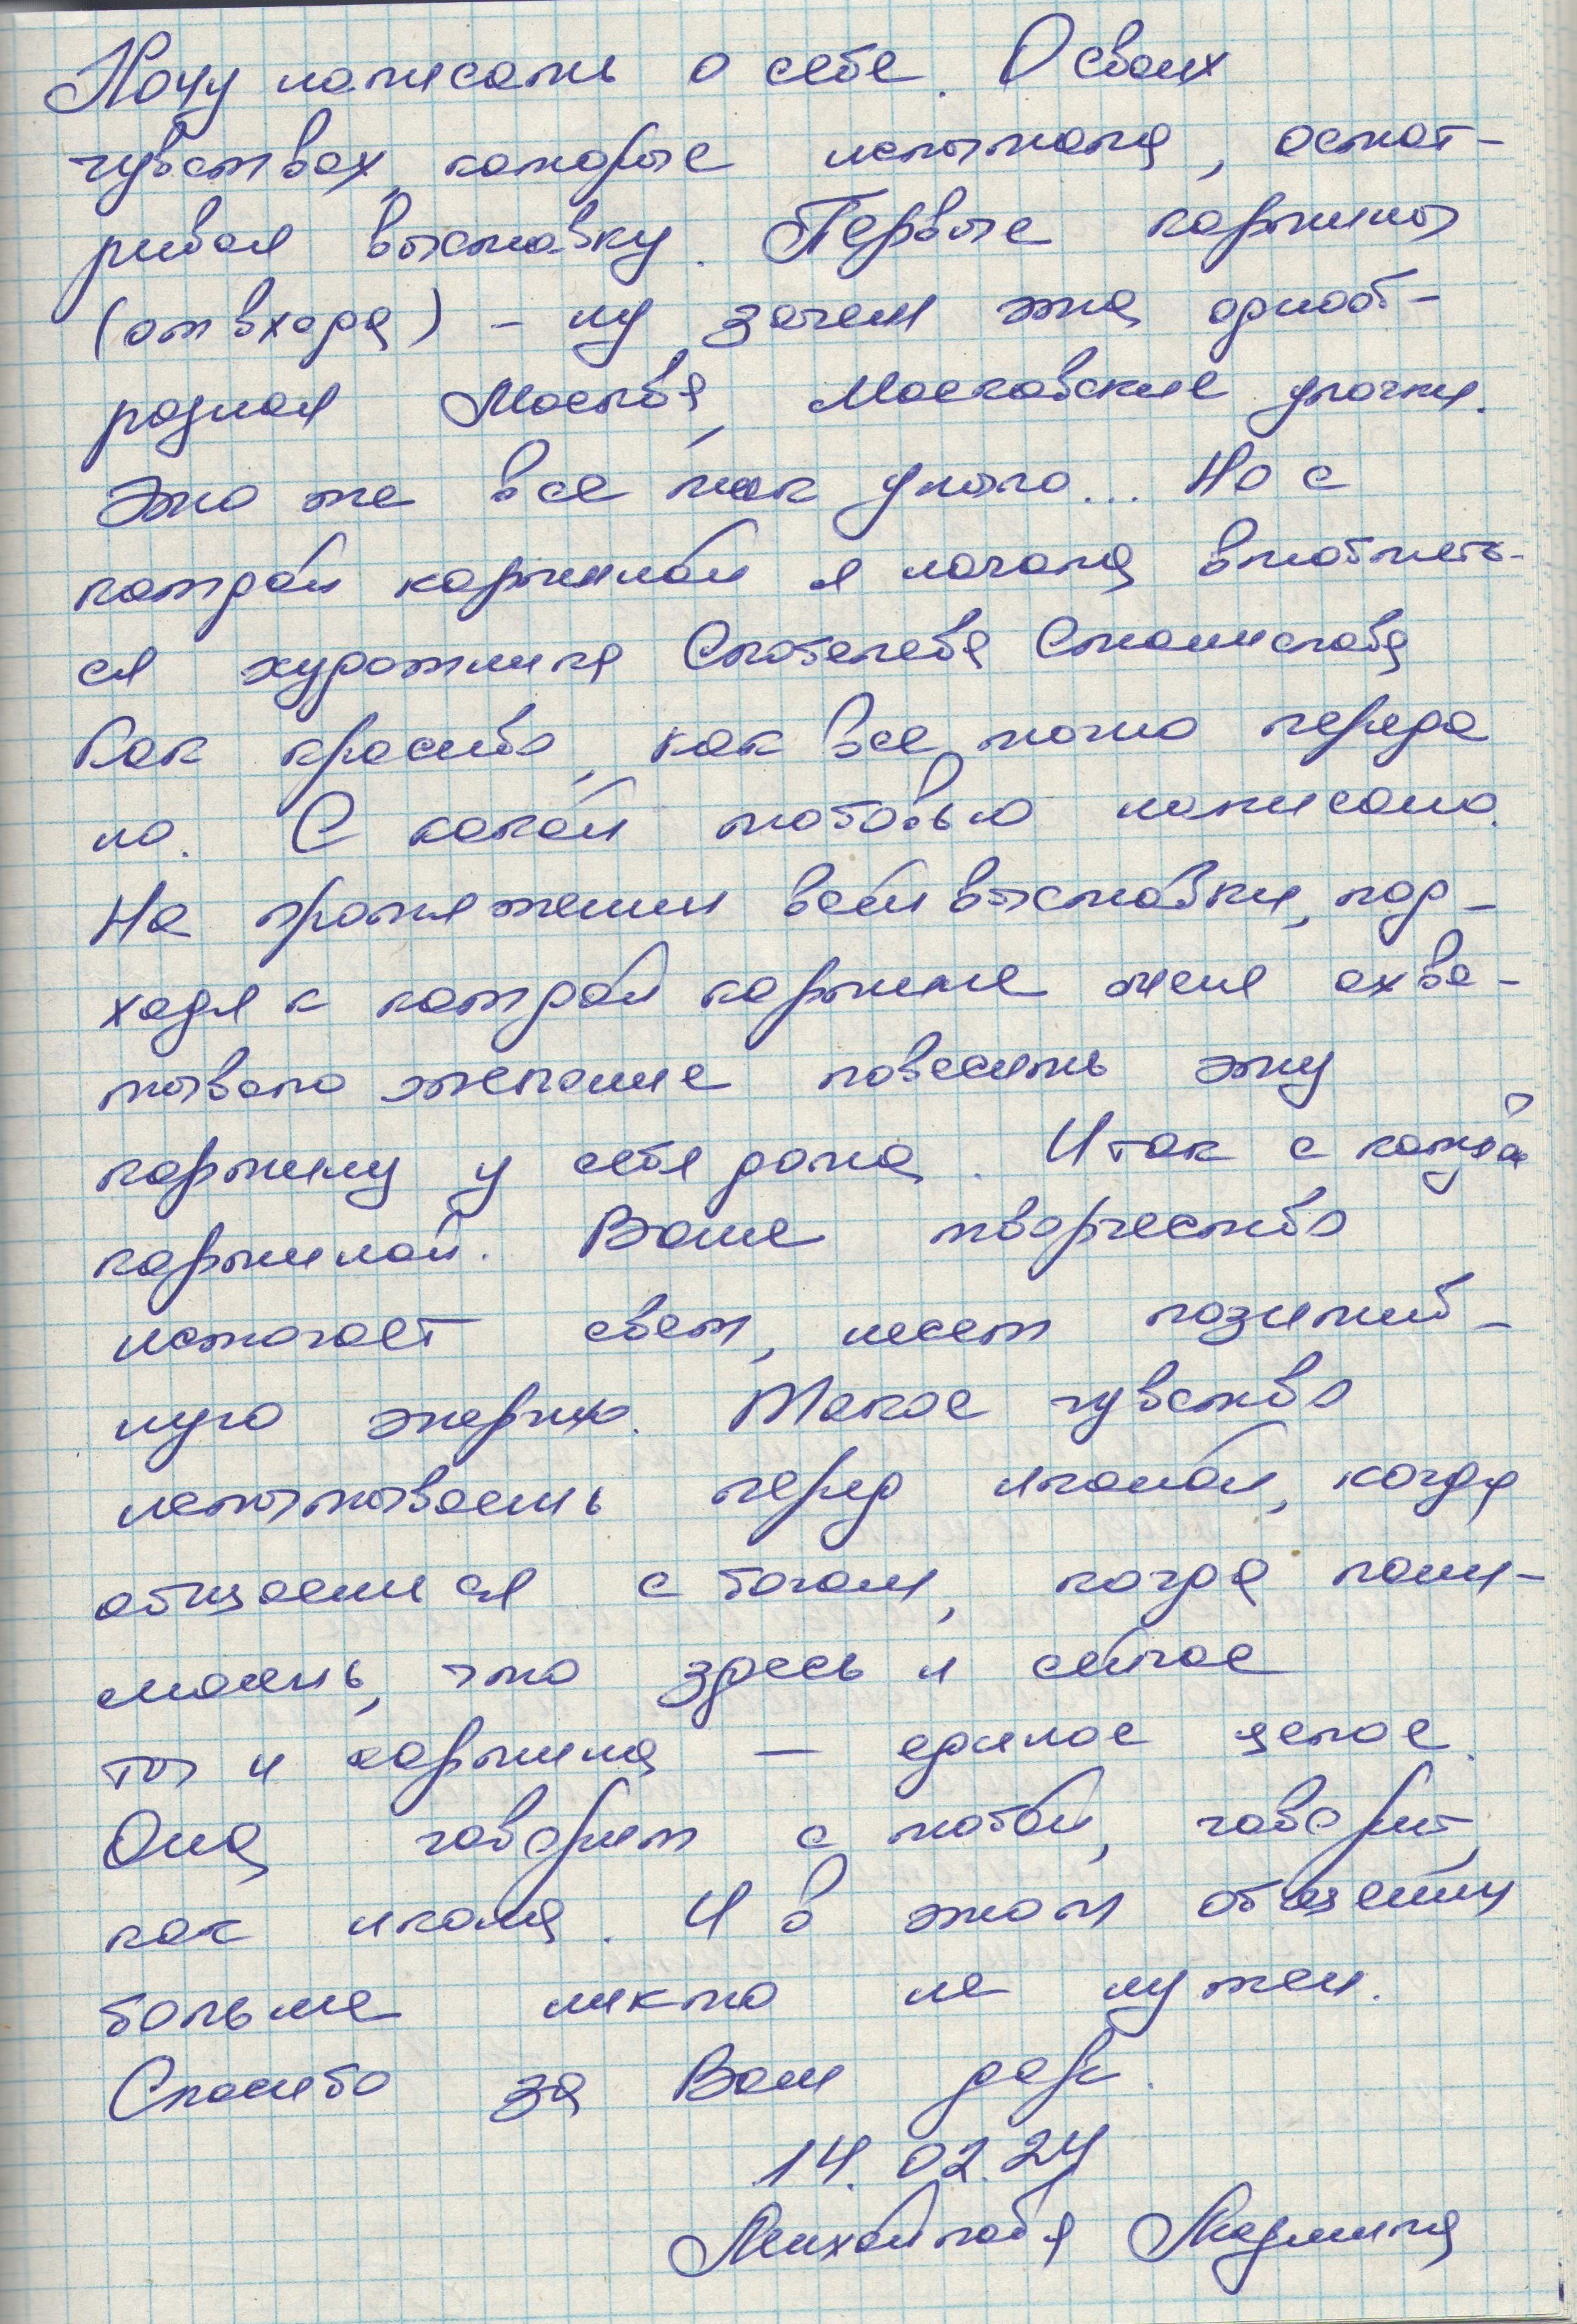 Хочу написать о себе. О своих
чувствах, которые испытала, осмат-
ривая выставку. Первые картины
(от входа) – ну зачем эта однооб-
разная Москва, Московские улочки.
Это же все так уныло... Но с
каждой картиной я начала влюблять-
ся художника Станислава
Как красиво, как все точно переда
но. С какой любовью написано.
На протяжении всей выставки, под-
ходя к каждой картине меня охва-
тывало желание повесить эту
картину у себя дома. И так с каждой
картиной. Ваше творчество
источает свет, несет позитив-
ную энергию. Такое чувство
испытываешь перед иконой, когда
общаешься с богом, когда пони-
маешь, что здесь и сейчас
ты и картина — единое целое.
Она говорит с тобой, говорит,
как икона. И в этом общении
больше никто не нужен.
Спасибо за Ваш дар.
14.02.24
Михайлова Людмила